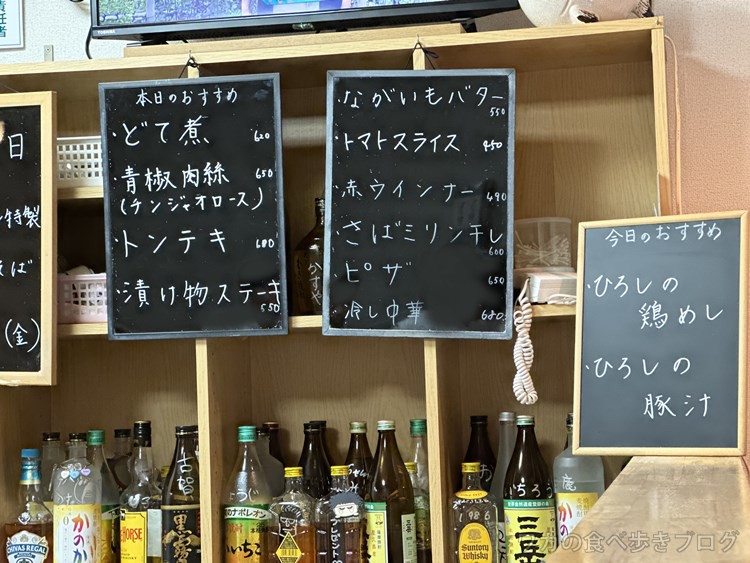 任者
TOSHIBA
日
特製
ば
(金)
本日のおすすめ
・どて煮 620
・青椒肉絲 650
(チンジャオロース)
・トンテキ 680
・漬け物ステーキ 550
・ながいもバター 550
・トマトスライス 450
・赤ウインナー 490
・さばミリン干し 600
・ピザ 650
・冷し中華 680
今日のおすすめ
・ひろしの
鶏めし
・ひろしの
豚汁
CHIVAS REGAL
かのか
HORSE
黒霧
のナポレオン
いいちこ
1986
Suntory
Whisky
いちろう
三岳
かの
力の食べ歩きブログ